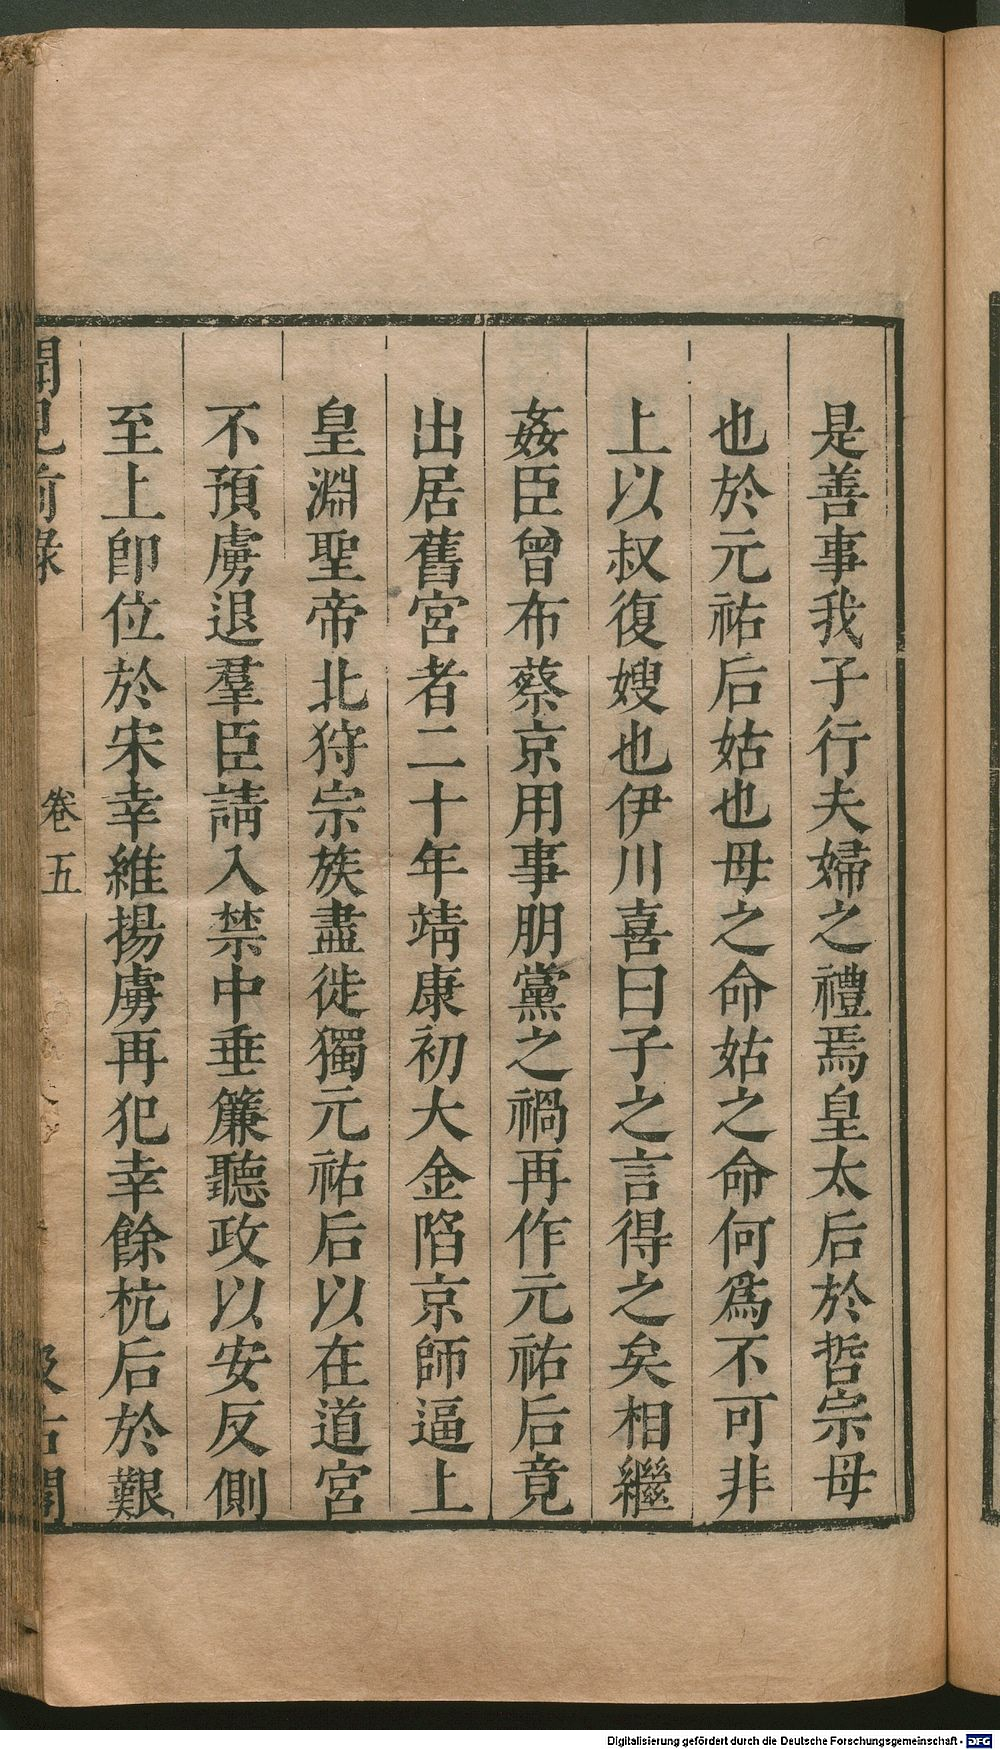 是善事我子行夫婦之禮焉皇太后於哲宗母
也於元祐后姑也母之命姑之命何爲不可非
上以叔復嫂也伊川喜曰子之言得之矣相繼
姦臣曾布蔡京用事朋黨之禍再作元祐后竟
出居舊宮者二十年靖康初大金陷京師逼上
皇淵聖帝北狩宗族盡徙獨元祐后以在道宮
不預虜退羣臣請入禁中垂簾聽政以安反側
至上卽位於宋幸維揚虜再犯幸餘杭后於艱
聞見前錄 卷五 汲古閣
Digitalisierung gefördert durch die Deutsche Forschungsgemeinschaft - DFG